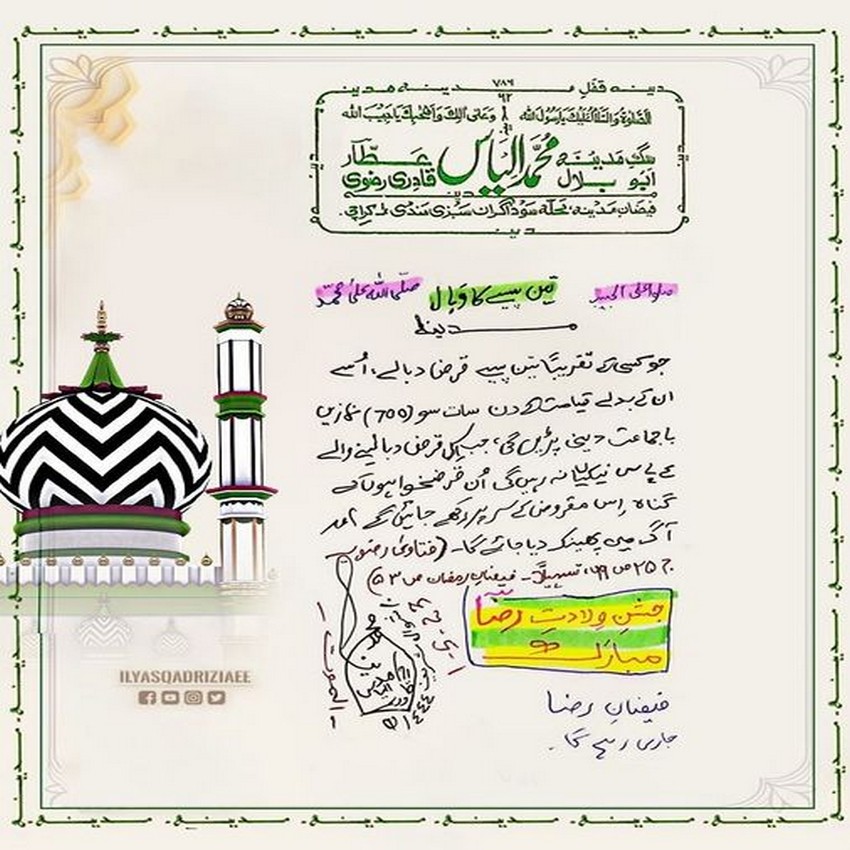 مدینہ
۷۸۶
۹۲
الصلوۃ والسلام علیک یا رسول اللہ وعلی اٰلک واصحٰبک یا حبیب اللہ
سگِ مدینہ محمد الیاس عطّار
ابو بلال قادری رضوی
فیضان مدینہ، محلہ سوداگران سبزی منڈی کراچی
صلوا علی الحبیب تین پیسے کا وبال صلی اللہ علی محمد
مدینہ
جو کسی کے تقریباً تین پیسے قرض دبالے، اُسے
ان کے بدلے قیامت کے دن سات سو (700) نمازیں
باجماعت دینی پڑیں گی، جب اِس قرض دبا لینے والے
کے پاس نیکیاں نہ رہیں گی اُن قرضخواہوں کے
گناہ اِس مقروض کے سر پر رکھے جائیں گے اور
آگ میں پھینک دیا جائے گا۔ (فتاویٰ رضویہ
ج ۲۵ ص ۶۹، تسہیلاً۔ فیضانِ رمضان ص ۵۳)
جشنِ ولادتِ رضا
مبارک
فیضانِ رضا
جاری رہے گا۔
الموت
ILYASQADRIZIAEE